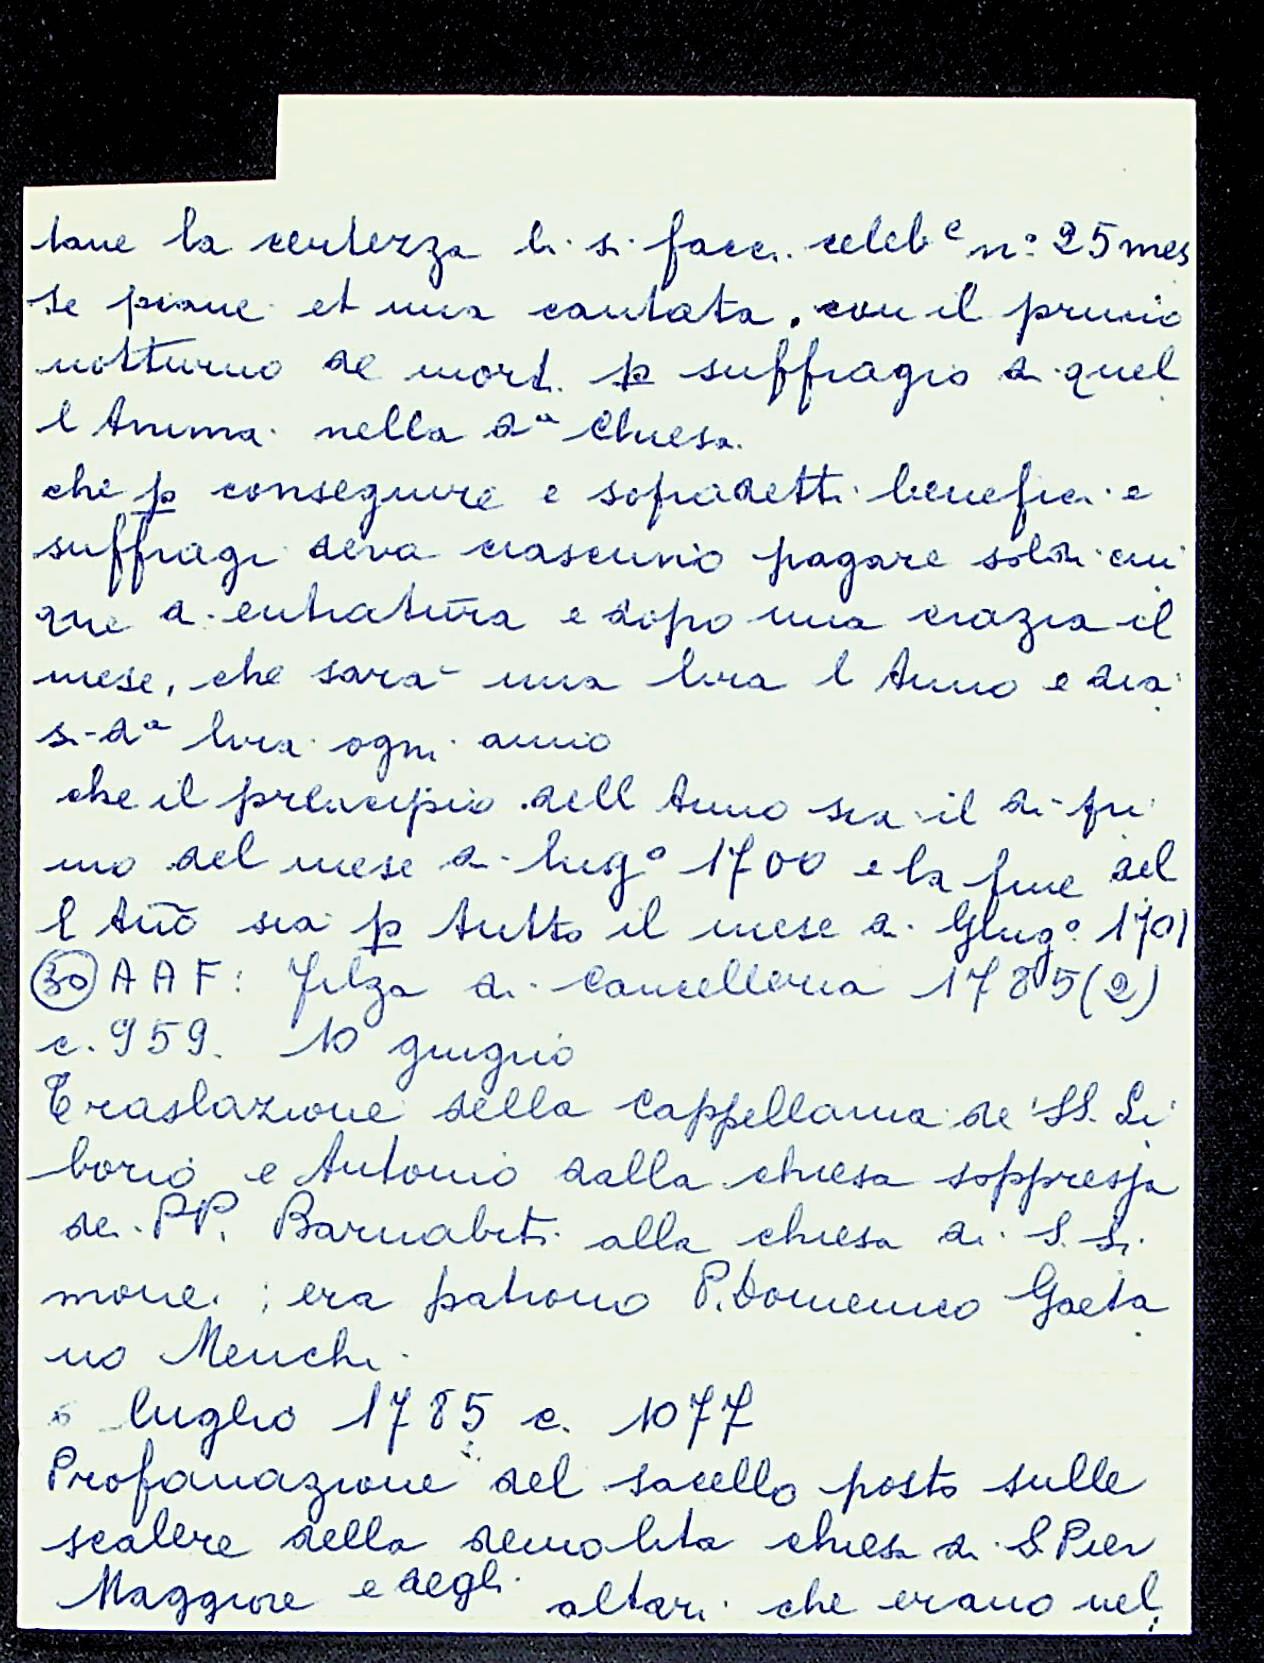 tane la certezza li si facci celeb.e n° 25 mes
se piane et una cantata, con il primio
notturno de morti p suffragio di quel
l Anima nella da Chiesa.
che p conseguire e sopradetti benefici e
suffragi deva ciascuno pagare soldi cin
que d. entratura e dopo una crazia il
mese, che sarà una lira l Anno e dia
si da lira ogni anno
che il principio dell Anno sia il di pri
mo del mese di lug° 1700 e la fine del
l Año sia p tutto il mese di Giug° 1701
30 AAF: Filza di Cancelleria 1785(2)
c. 959. 10 giugno
Traslazione della Cappellania de' SS. Li
borio e Antonio dalla chiesa soppressa
dei PP. Barnabiti alla chiesa di S. Si
mone ; era patrono P. Domenico Gaeta
no Menchi
luglio 1785 c. 1077
Profanazione del sacello posto sulle
scalere della demolita chiesa di S. Pier
Maggiore e degli altari che erano nel